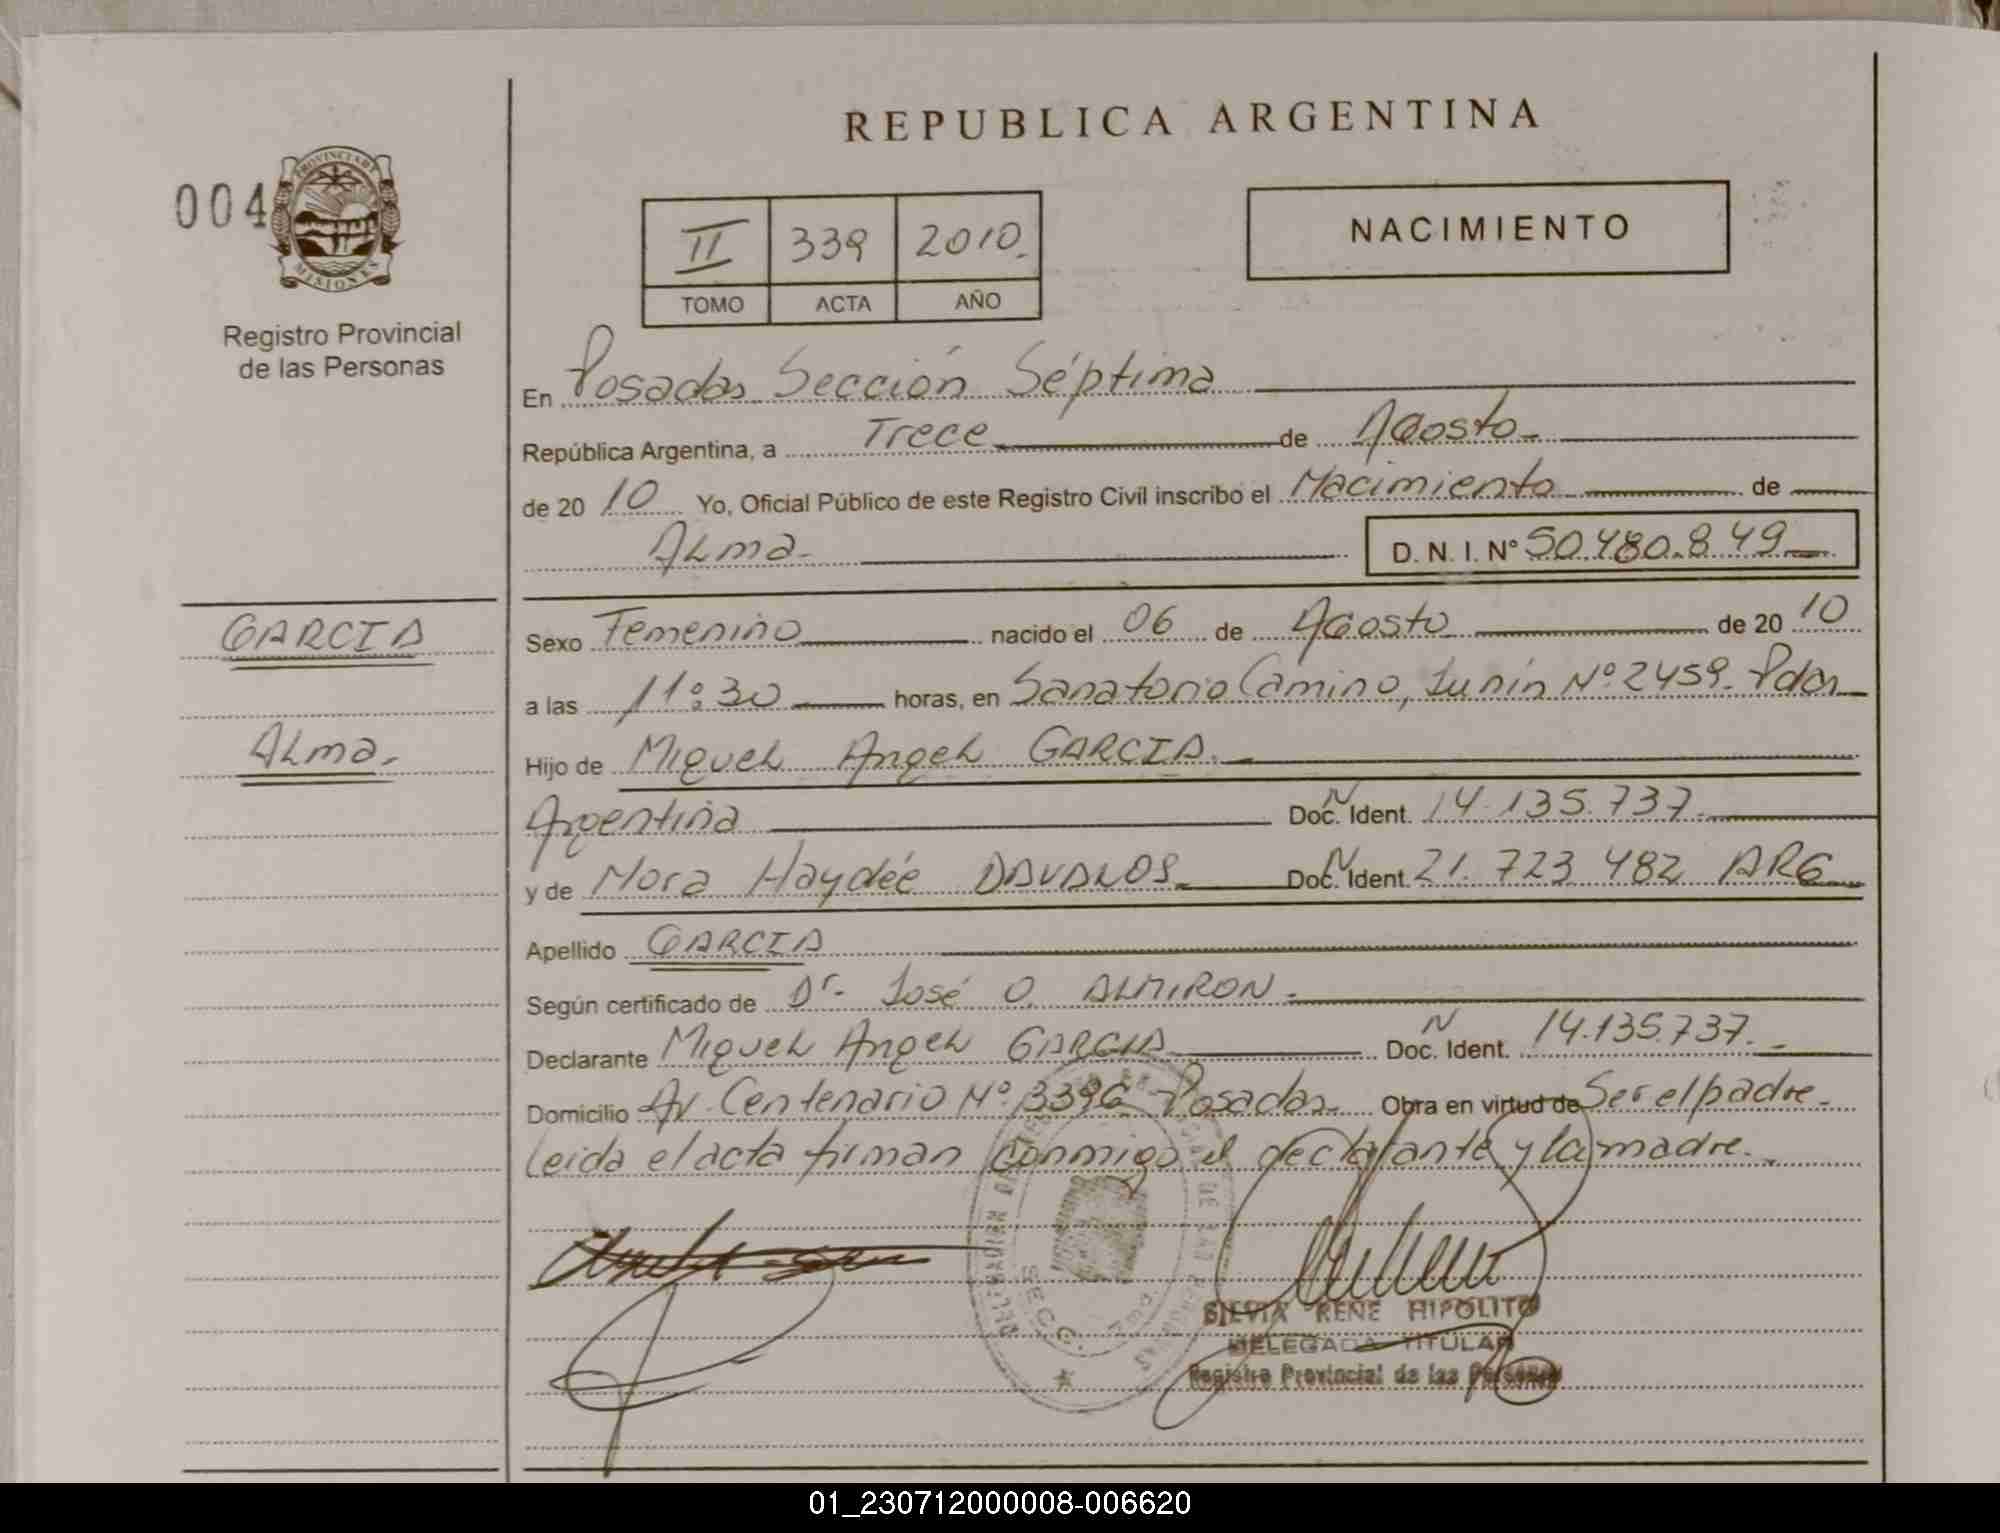 REPUBLICA ARGENTINA
004
PROVINCIA DE
MISIONES
Registro Provincial
de las Personas
II 339 2010.
TOMO ACTA AÑO
NACIMIENTO
En Posadas Sección Séptima
República Argentina, a Trece de Agosto
de 20 10 Yo, Oficial Público de este Registro Civil inscribo el Nacimiento de
Alma. D. N. I. Nº 50.480.849
GARCIA
Alma.
Sexo Femenino nacido el 06 de Agosto de 20 10
a las 11:30 horas, en Sanatorio Camino, Junín Nº 2459. Pdas
Hijo de Miguel Angel GARCIA.
Argentina Doc. N Ident. 14.135.737
y de Nora Haydée DAVALOS Doc. N Ident. 21.723.482 ARG
Apellido GARCIA
Según certificado de Dr. José O. ALMIRON.
Declarante Miguel Angel GARCIA Doc. N Ident. 14.135.737.
Domicilio Av. Centenario Nº 3396 Posadas. Obra en virtud de Ser el padre.
Leida el acta firman conmigo el declarante y la madre.
SECC.
SILVIA RENE HIPOLITO
DELEGADA TITULAR
Registro Provincial de las Personas
01_230712000008-006620